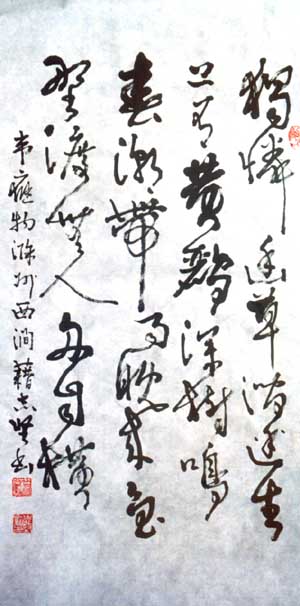 獨憐幽草澗邊生
上有黄鸝深樹鳴
春潮帶雨晚来急
野渡無人舟自横
韦應物滁州西澗